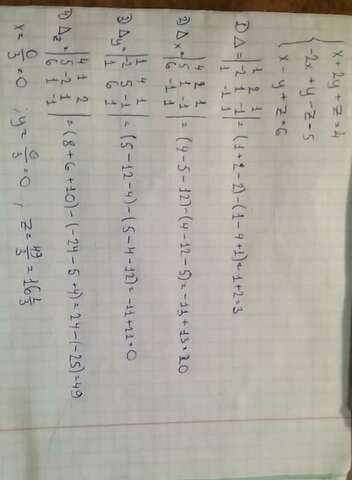 x + 2y + z = 4
-2x + y - z = 5
x - y + z = 6
1) Δ = | 1 2 1 | -2 1 -1 | 1 -1 1 | = (1+2-2) - (1-4+1) = 1+2 = 3
2) Δx = | 4 2 1 | 5 1 -1 | 6 -1 1 | = (4-5-12) - (4-12-5) = -13+13 = 0
3) Δy = | 1 4 1 | -2 5 -1 | 1 6 1 | = (5-12-4) - (5-4-12) = -11+11 = 0
4) Δz = | 4 1 2 | 5 -2 1 | 6 1 -1 | = (8+6+10) - (-24-5+4) = 24-(-25) = 49
x = 0/3 = 0 ; y = 0/3 = 0 ; z = 49/3 = 16 1/3